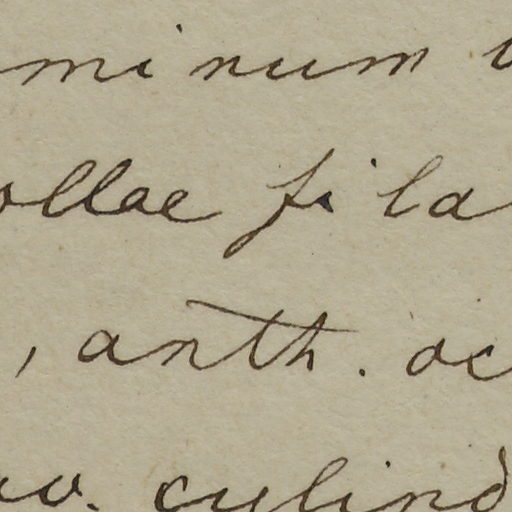 minum
ollae fila
, anth. oc
cylind